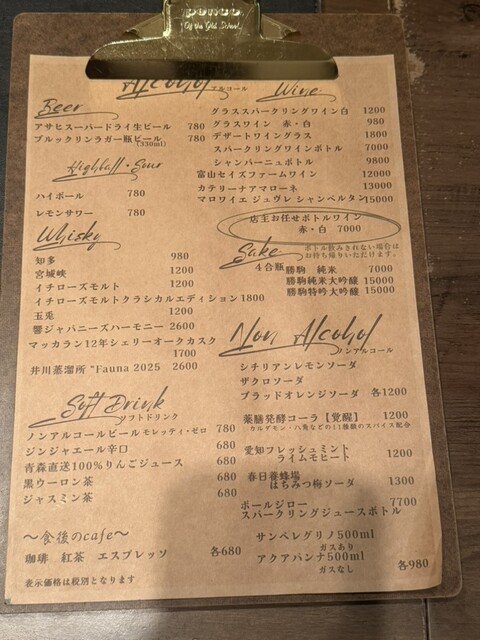 penco
Of the Old School
Alcohol アルコール
Beer
アサヒスーパードライ生ビール 780
ブルックリンラガー瓶ビール 780
(330ml)
Highball・Sour
ハイボール 780
レモンサワー 780
Whisky
知多 980
宮城峡 1200
イチローズモルト 1200
イチローズモルトクラシカルエディション 1800
玉兎 1200
響ジャパニーズハーモニー 2600
マッカラン12年シェリーオークカスク
1700
井川蒸溜所 “Fauna 2025 2600
Soft Drink
ソフトドリンク
ノンアルコールビール モレッティ・ゼロ 780
ジンジャエール辛口 680
青森直送100%りんごジュース 680
黒ウーロン茶 680
ジャスミン茶 680
～食後のcafe～
珈琲 紅茶 エスプレッソ 各680
表示価格は税別となります
Wine
グラススパークリングワイン白 1200
グラスワイン 赤・白 980
デザートワイングラス 1800
スパークリングワインボトル 7000
シャンパーニュボトル 9800
富山セイズファームワイン 12000
カテリーナアマローネ 13000
マロワイエ ジュヴレ シャンベルタン 15000
店主お任せボトルワイン
赤・白 7000
Sake
ボトル飲みきれない場合は
お持ち帰りいただけます。
4合瓶
勝駒 純米 7000
勝駒純米大吟醸 15000
勝駒特吟大吟醸 15000
Non Alcohol
ノンアルコール
シチリアンレモンソーダ
ザクロソーダ
ブラッドオレンジソーダ 各1200
薬膳発酵コーラ【覚醒】 1200
カルダモン・八角などの11種類のスパイス配合
愛知フレッシュミント
ライムモヒート 1200
春日養蜂場
はちみつ梅ソーダ 1300
ポールジロー 7700
スパークリングジュースボトル
サンペレグリノ500ml
ガスあり
アクアパンナ500ml
ガスなし 各980